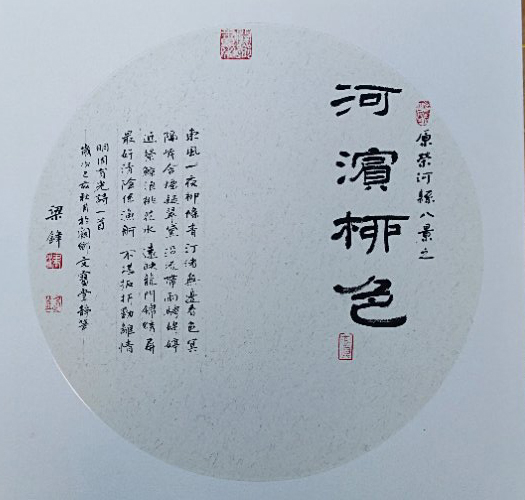 原荣河縣八景之
河濱柳色
東風一夜柳條青 汀渚無邊春色冥
隔岸含煙翠黛 沿流帶雨娉婷
近縈鯨浪桃花水 遠映龍門錦屏
最好清陰係漁 不堪折動離情
明周有光詩一首
歲次己亥秋月於鄉文寶堂靜
梁鋒